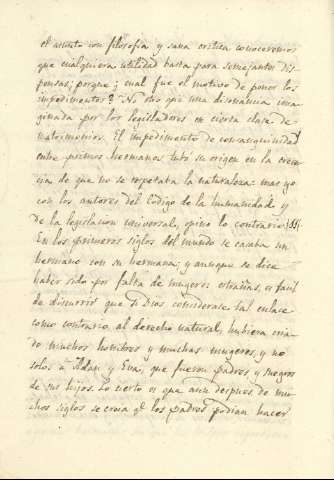 el asunto con filosofia y sana critica conoceremos
que cualquiera utilidad basta para semejantes dis-
pensas; porque ¿cual fue el motivo de poner los
impedimentos? No otro que una disonancia ima-
ginada por los legisladores en cierta clase de
matrimonios. El impedimento de consanguinidad
entre primos hermanos tubo su origen en la creen-
cia de que no se respetaba la naturaleza: mas yo
con los autores del Codigo de la humanidad y
de la legislacion universal, opino lo contrario
En los primeros siglos del mundo se casaba un
hermano con su hermana; y aunque se dice
haber sido por falta de mugeres estrañas, es facil
de discurrir que si Dios considerase tal enlace
como contrario al derecho natural, hubiera cria-
do muchos hombres y muchas mugeres, y no
solos a Adan y Eva, que fueron padres y suegros
de sus hijos. Lo cierto es que aun despues de mu-
chos siglos se creia q.e los padres podian hacer